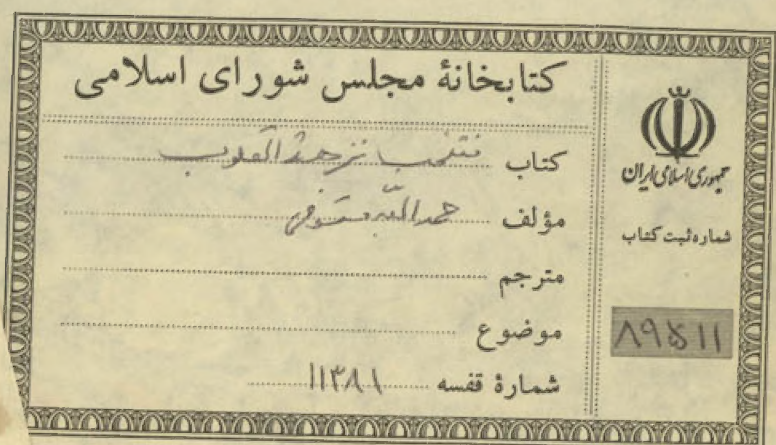 کتابخانهٔ مجلس شورای اسلامی
کتاب منتخب نزهةالقلوب
مؤلف حمدالله مستوفی
مترجم
موضوع
شمارهٔ قفسه ۱۱۳۸۱
جمهوری اسلامی ایران
شماره ثبت کتاب
۸۹۵۱۱